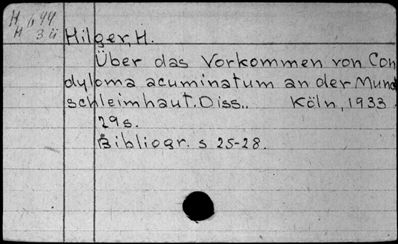 Hilger, H.
Über das Vorkommen von Con
dyloma acuminatum an der Mund
schleimhaut. Diss.. Köln, 1933.
29s.
Bibliogr. s 25-28.